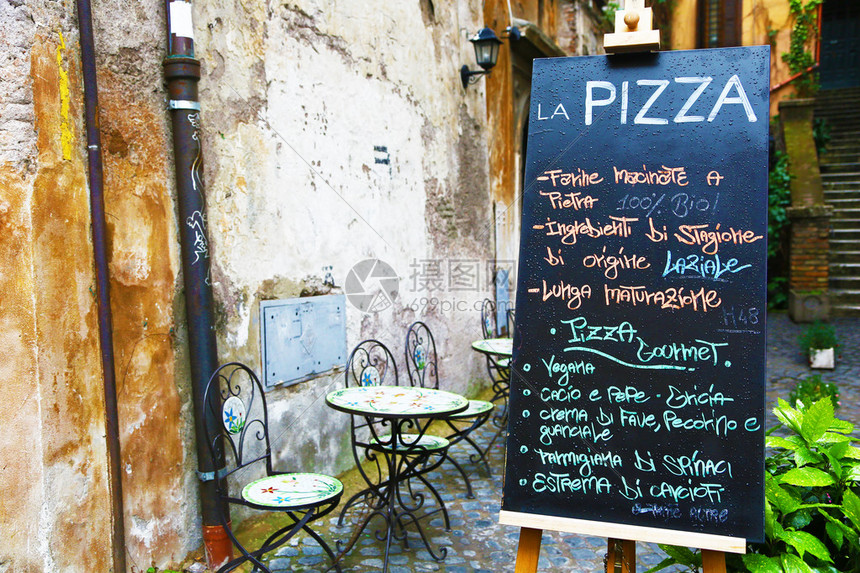 LA PIZZA
- Farine Macinate A
Pietra 100% Bio!
- Ingredienti Di Stagione
Di origine LAZiALe
- Lunga MATURAZione H48
• PizzA
Gourmet.
• VegANA
• CACiO e PePe - GriciA
• CreMA Di FAVe, Pecorino e
guANciALe
• PArmigiANA Di SPiNACi
• ESTreMA Di CArciOFi
e altre
摄图网
699pic.com